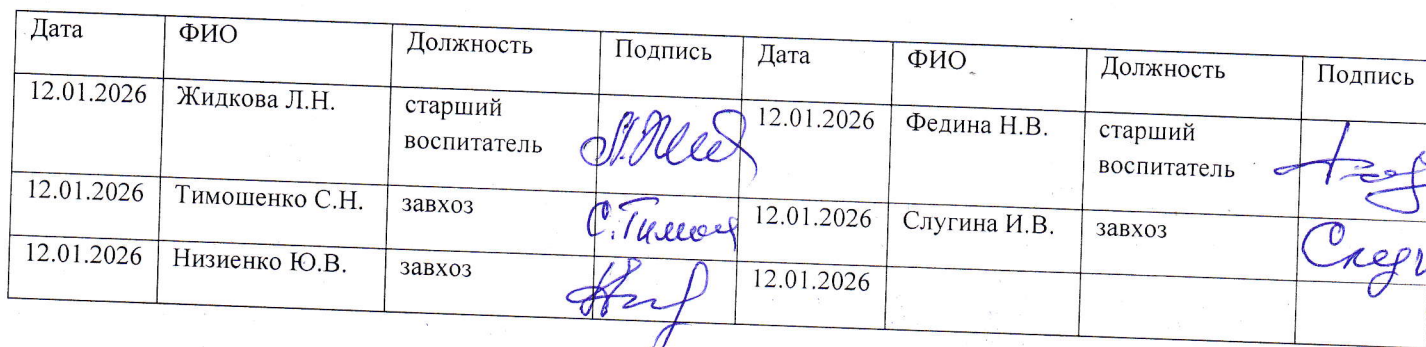 Дата ФИО Должность Подпись Дата ФИО Должность Подпись
12.01.2026 Жидкова Л.Н. старший воспитатель 12.01.2026 Федина Н.В. старший воспитатель
12.01.2026 Тимошенко С.Н. завхоз С.Тимош 12.01.2026 Слугина И.В. завхоз
12.01.2026 Низиенко Ю.В. завхоз 12.01.2026